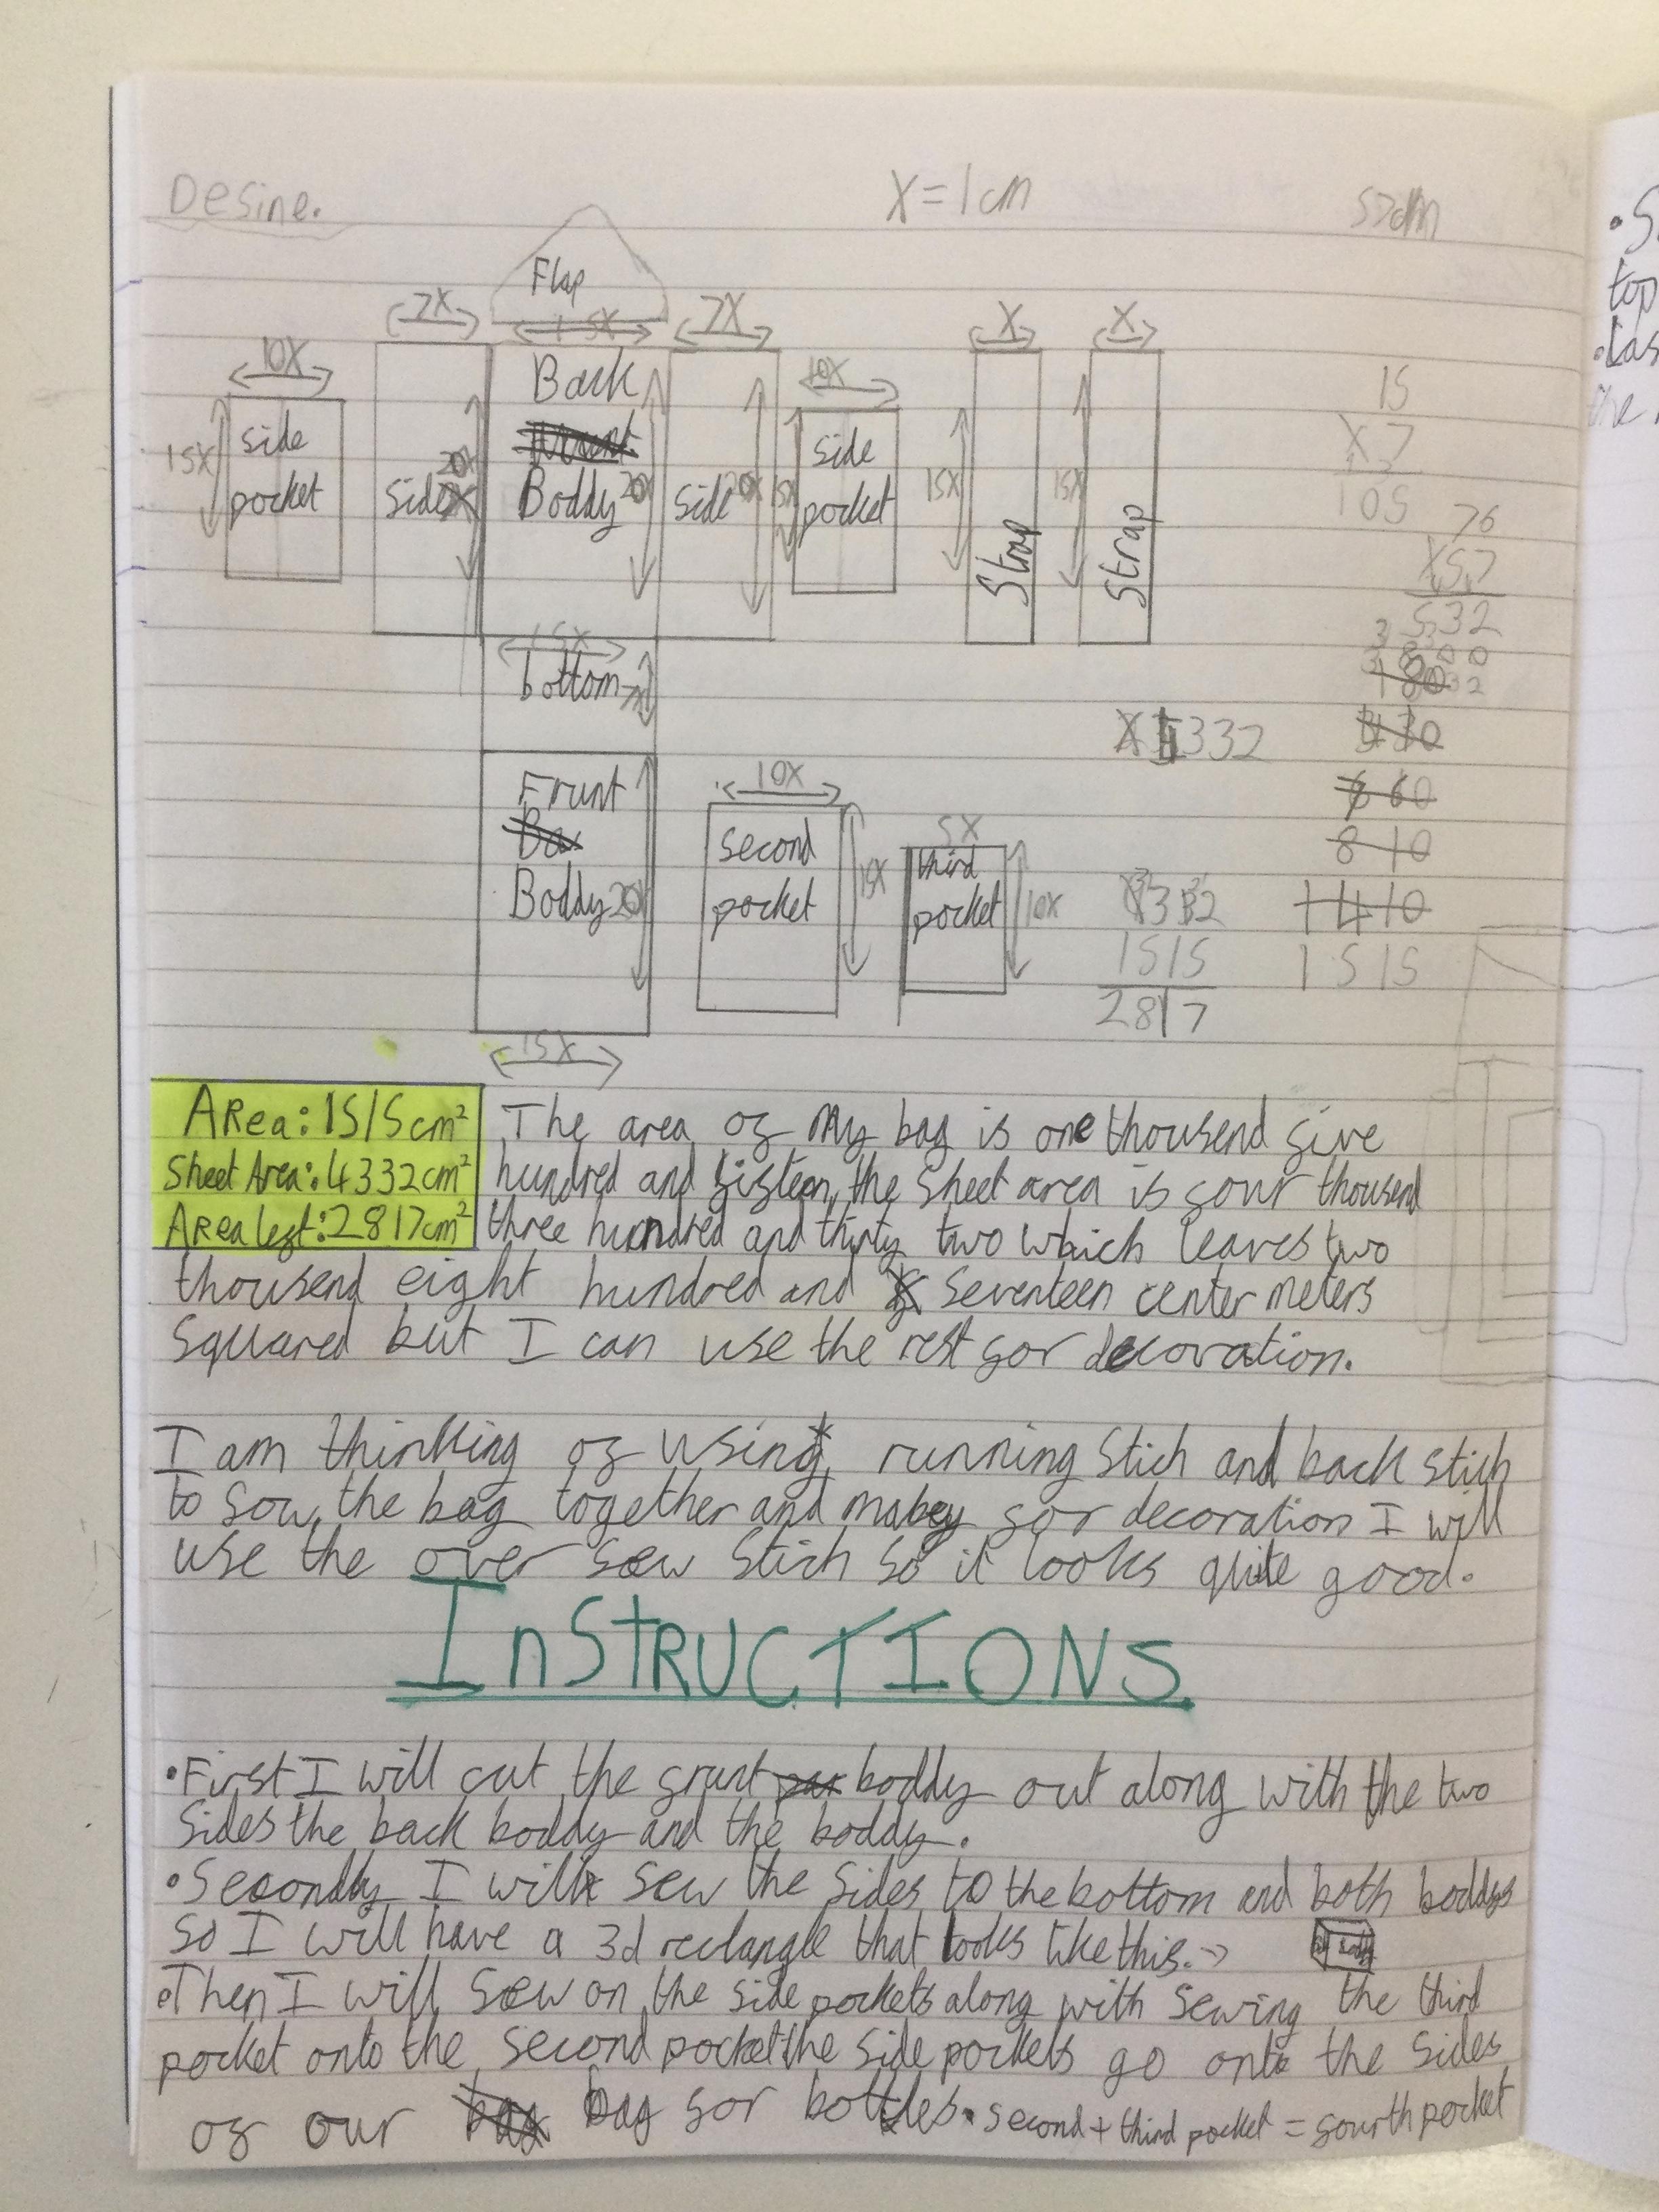 Desine.
X = 1 cm
57cm
Flap
7X
1 5X
7X
X
X
10X
Back
10X
15
side
side
X 7
15X
20X
15X
15X
15X
pocket
Side
Boddy
20X
side
20X
pocket
Strap
Strap
105
76
X57
532
3800
15X
bottom
7X
4332
10X
Frunt
second
5X
810
third
Boddy
20X
pocket
15X
pocket
10X
4332
1410
1515
1515
2817
15X
ARea: 1515cm²
Sheet Area: 4332cm²
Area left: 2817cm²
The area of my bag is one thousend five
hundred and fifteen, the sheet area is four thousend
three hundred and thirty two which leaves two
thousend eight hundred and seventeen center meters
squared but I can use the rest for decoration.
I am thinking of using running stich and back stich
to sow the bag together and mabey for decoration I will
use the over sew stich so it looks quite good.
InSTRUCTIONS
• First I will cut the frunt boddy out along with the two
sides the back boddy and the boddy.
• Secondly I will sew the sides to the bottom and both boddys
so I will have a 3d rectangle that looks like this. →
• Then I will sew on the side pockets along with sewing the third
pocket onto the second pocket the side pockets go onto the sides
of our bag for bottles. second + third pocket = fourth pocket
• S
top
• Las
the